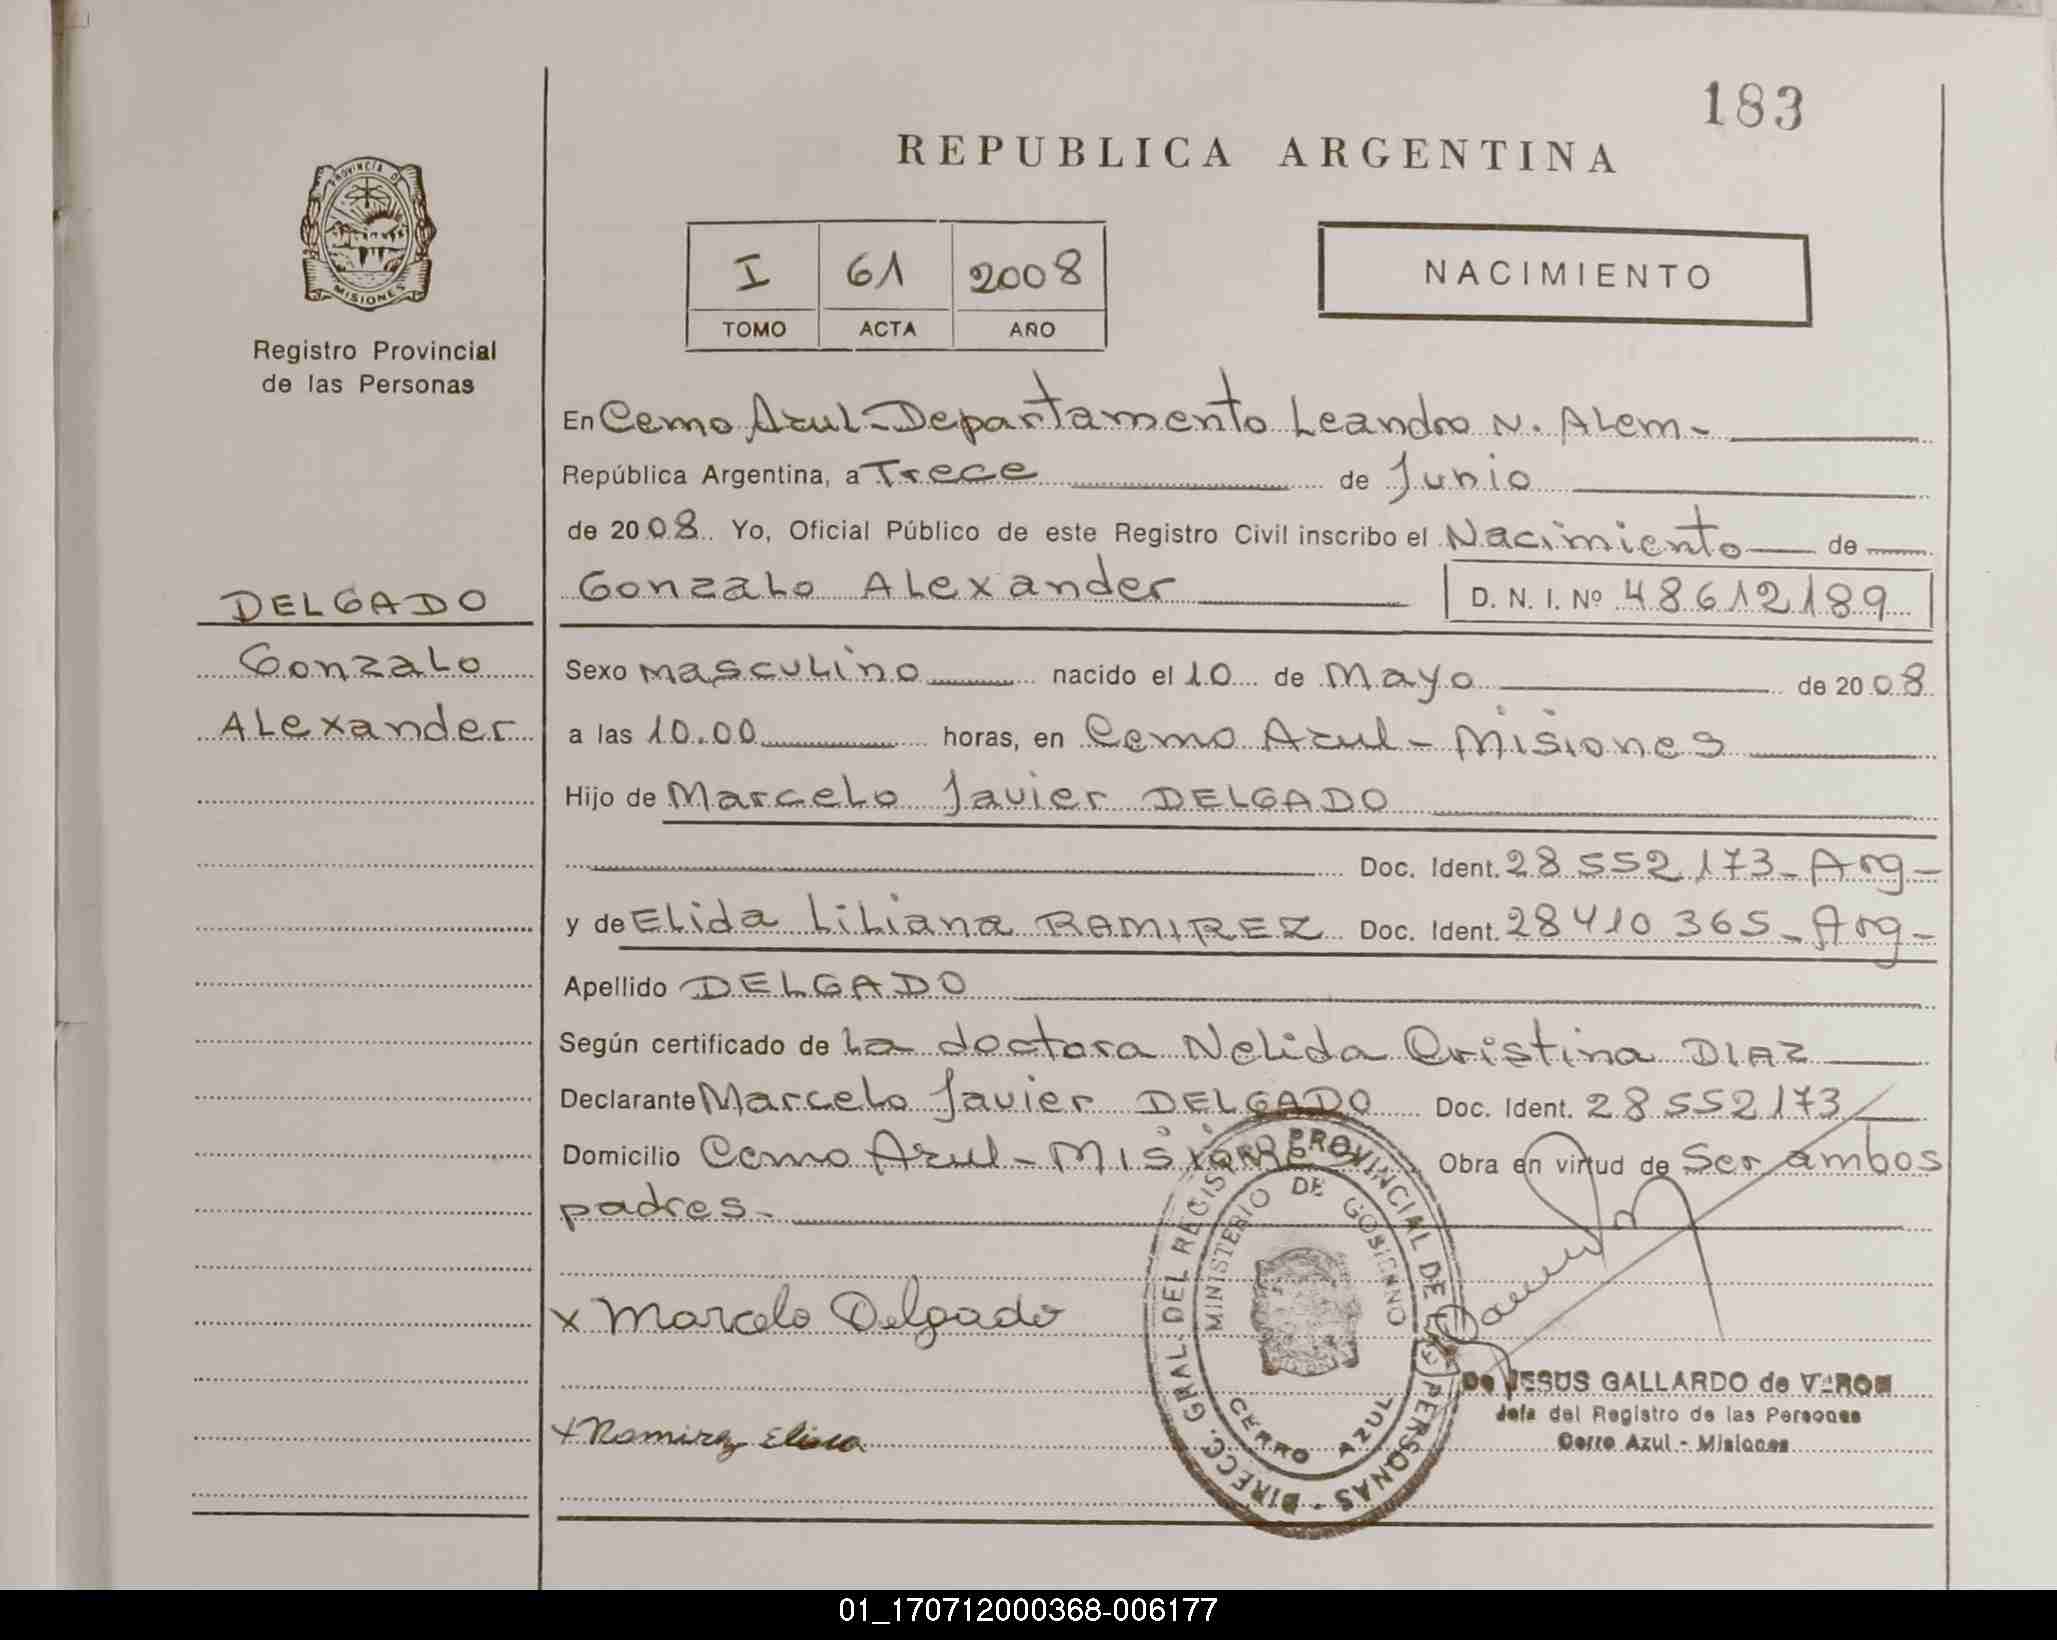 183
REPUBLICA ARGENTINA
PROVINCIA DE
MISIONES
Registro Provincial
de las Personas
I 61 2008
TOMO ACTA AÑO
NACIMIENTO
En Cerro Azul - Departamento Leandro N. Alem -
República Argentina, a Trece de Junio
de 2008. Yo, Oficial Público de este Registro Civil inscribo el Nacimiento de
DELGADO
Gonzalo
Alexander
Gonzalo Alexander D. N. I. Nº 48612189
Sexo masculino nacido el 10 de Mayo de 2008
a las 10.00 horas, en Cerro Azul - Misiones
Hijo de Marcelo Javier DELGADO
Doc. Ident. 28552173 - Arg -
y de Elida Liliana RAMIREZ Doc. Ident. 28410365 - Arg -
Apellido DELGADO
Según certificado de la doctora Nelida Cristina DIAZ
Declarante Marcelo Javier DELGADO Doc. Ident. 28552173
Domicilio Cerro Azul - Misiones Obra en virtud de Ser ambos
padres -
x Marcelo Delgado
x Ramirez Elida
DIRECC. GRAL. DEL REGISTRO PROVINCIAL DE LAS PERSONAS -
MINISTERIO DE GOBIERNO
CERRO AZUL
De JESUS GALLARDO de VERON
Jefa del Registro de las Personas
Cerro Azul - Misiones
01_170712000368-006177